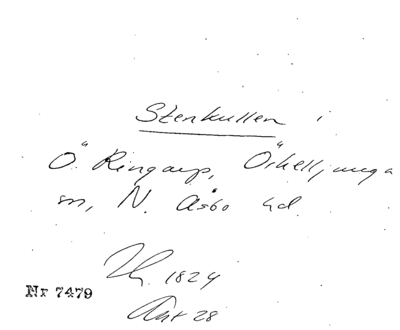 Stenkullen i
Ö. Ringarp, Örkelljunga
sn, N. Åsbo hd.
1824
Nr 7479
Akt 28